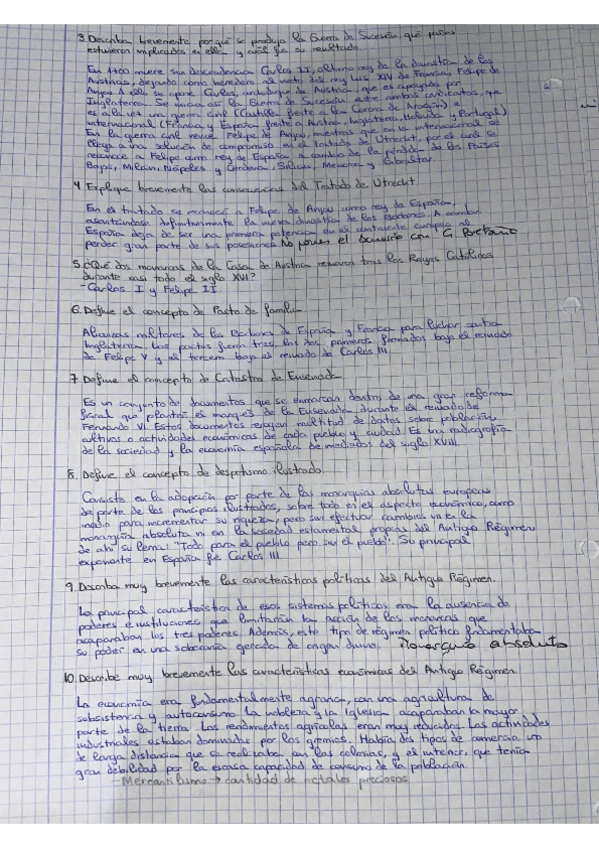 3. Describa brevemente por qué se produjo la Guerra de Sucesión, qué países
estuvieron implicados en ella y cuál fue su resultado.
En 1700 muere sin descendencia Carlos II, último rey de la dinastía de los
Austrias, dejando como heredero al nieto del rey Luis XIV de Francia, Felipe de
Anjou. A ello se opone Carlos, archiduque de Austria, que es apoyado por
Inglaterra. Se inicia así la Guerra de Sucesión entre ambos candidatos, que
es a la vez una guerra civil (Castilla frente a la Corona de Aragón) e
internacional (Francia y España frente a Austria, Inglaterra, Holanda y Portugal)
En la guerra civil vence Felipe de Anjou, mientras que en la internacional se
llega a una solución de compromiso en el tratado de Utrecht, por el cual se
reconoce a Felipe como rey de España a cambio de la pérdida de los Países
Bajos, Milán, Nápoles y Cerdeña, Sicilia, Menorca y Gibraltar
4. Explique brevemente las consecuencias del Tratado de Utrecht
En el tratado se reconoció a Felipe de Anjou como rey de España,
asentándose definitivamente la nueva dinastía de los Borbones. A cambio
España deja de ser una primera potencia en el continente europeo al
perder gran parte de sus posesiones. No ponen el con G. Bretaña
5. ¿Qué dos monarcas de la Casa de Austria reinaron tras los Reyes Católicos
durante casi todo el siglo XVI?
- Carlos I y Felipe II
6. Define el concepto de Pacto de familia
Alianzas militares de los Borbones de España y Francia para luchar contra
Inglaterra. Los pactos fueron tres, los dos primeros firmados bajo el reinado
de Felipe V y el tercero bajo el reinado de Carlos III
7. Define el concepto de Catastro de Ensenada
Es un conjunto de documentos que se enmarcan dentro de una gran reforma
fiscal que planteó el marqués de la Ensenada durante el reinado de
Fernando VI. Estos documentos recogían multitud de datos sobre población
cultivos o actividades económicas de cada pueblo y ciudad. Es una radiografía
de la sociedad y la economía española de mediados del siglo XVIII.
8. Define el concepto de despotismo ilustrado.
Consiste en la adopción por parte de las monarquías absolutas europeas
de parte de los principios ilustrados, sobre todo en el aspecto económico, como
medio para incrementar su riqueza, pero sin efectuar cambios ni en la
monarquía absoluta ni en la sociedad estamental propias del Antiguo Régimen
de ahí su lema: "Todo para el pueblo pero sin el pueblo". Su principal
exponente en España fue Carlos III.
9. Describa muy brevemente las características políticas del Antiguo Régimen.
La principal característica de esos sistemas políticos era la ausencia de
poderes e instituciones que limitarían la acción de los monarcas que
acaparaban los tres poderes. Además, este tipo de régimen político fundamentaba
su poder en una soberanía de origen divino. Monarquía absoluta
10. Describe muy brevemente las características económicas del Antiguo Régimen
La economía era fundamentalmente agraria, con una agricultura de
subsistencia y autoconsumo. La nobleza y la Iglesia acaparaban la mayor
parte de la tierra. Los rendimientos agrícolas eran muy reducidos. Las actividades
industriales estaban dominadas por los gremios. Había dos tipos de comercio, un
de larga distancia que se realizaba con las colonias, y el interior, que tenía
gran debilidad por la escasa capacidad de consumo de la población.
- Mercantilismo → cantidad de metales preciosos